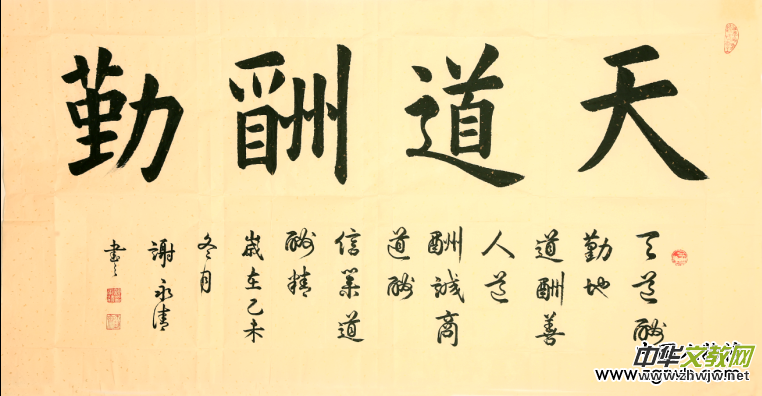 天道酬勤
天道酬
勤地
道酬善
人道
酬誠商
道酬
信業道
酬精
歲在乙未
冬月
謝永清
書之
中华文教网
www.zhwjw.net